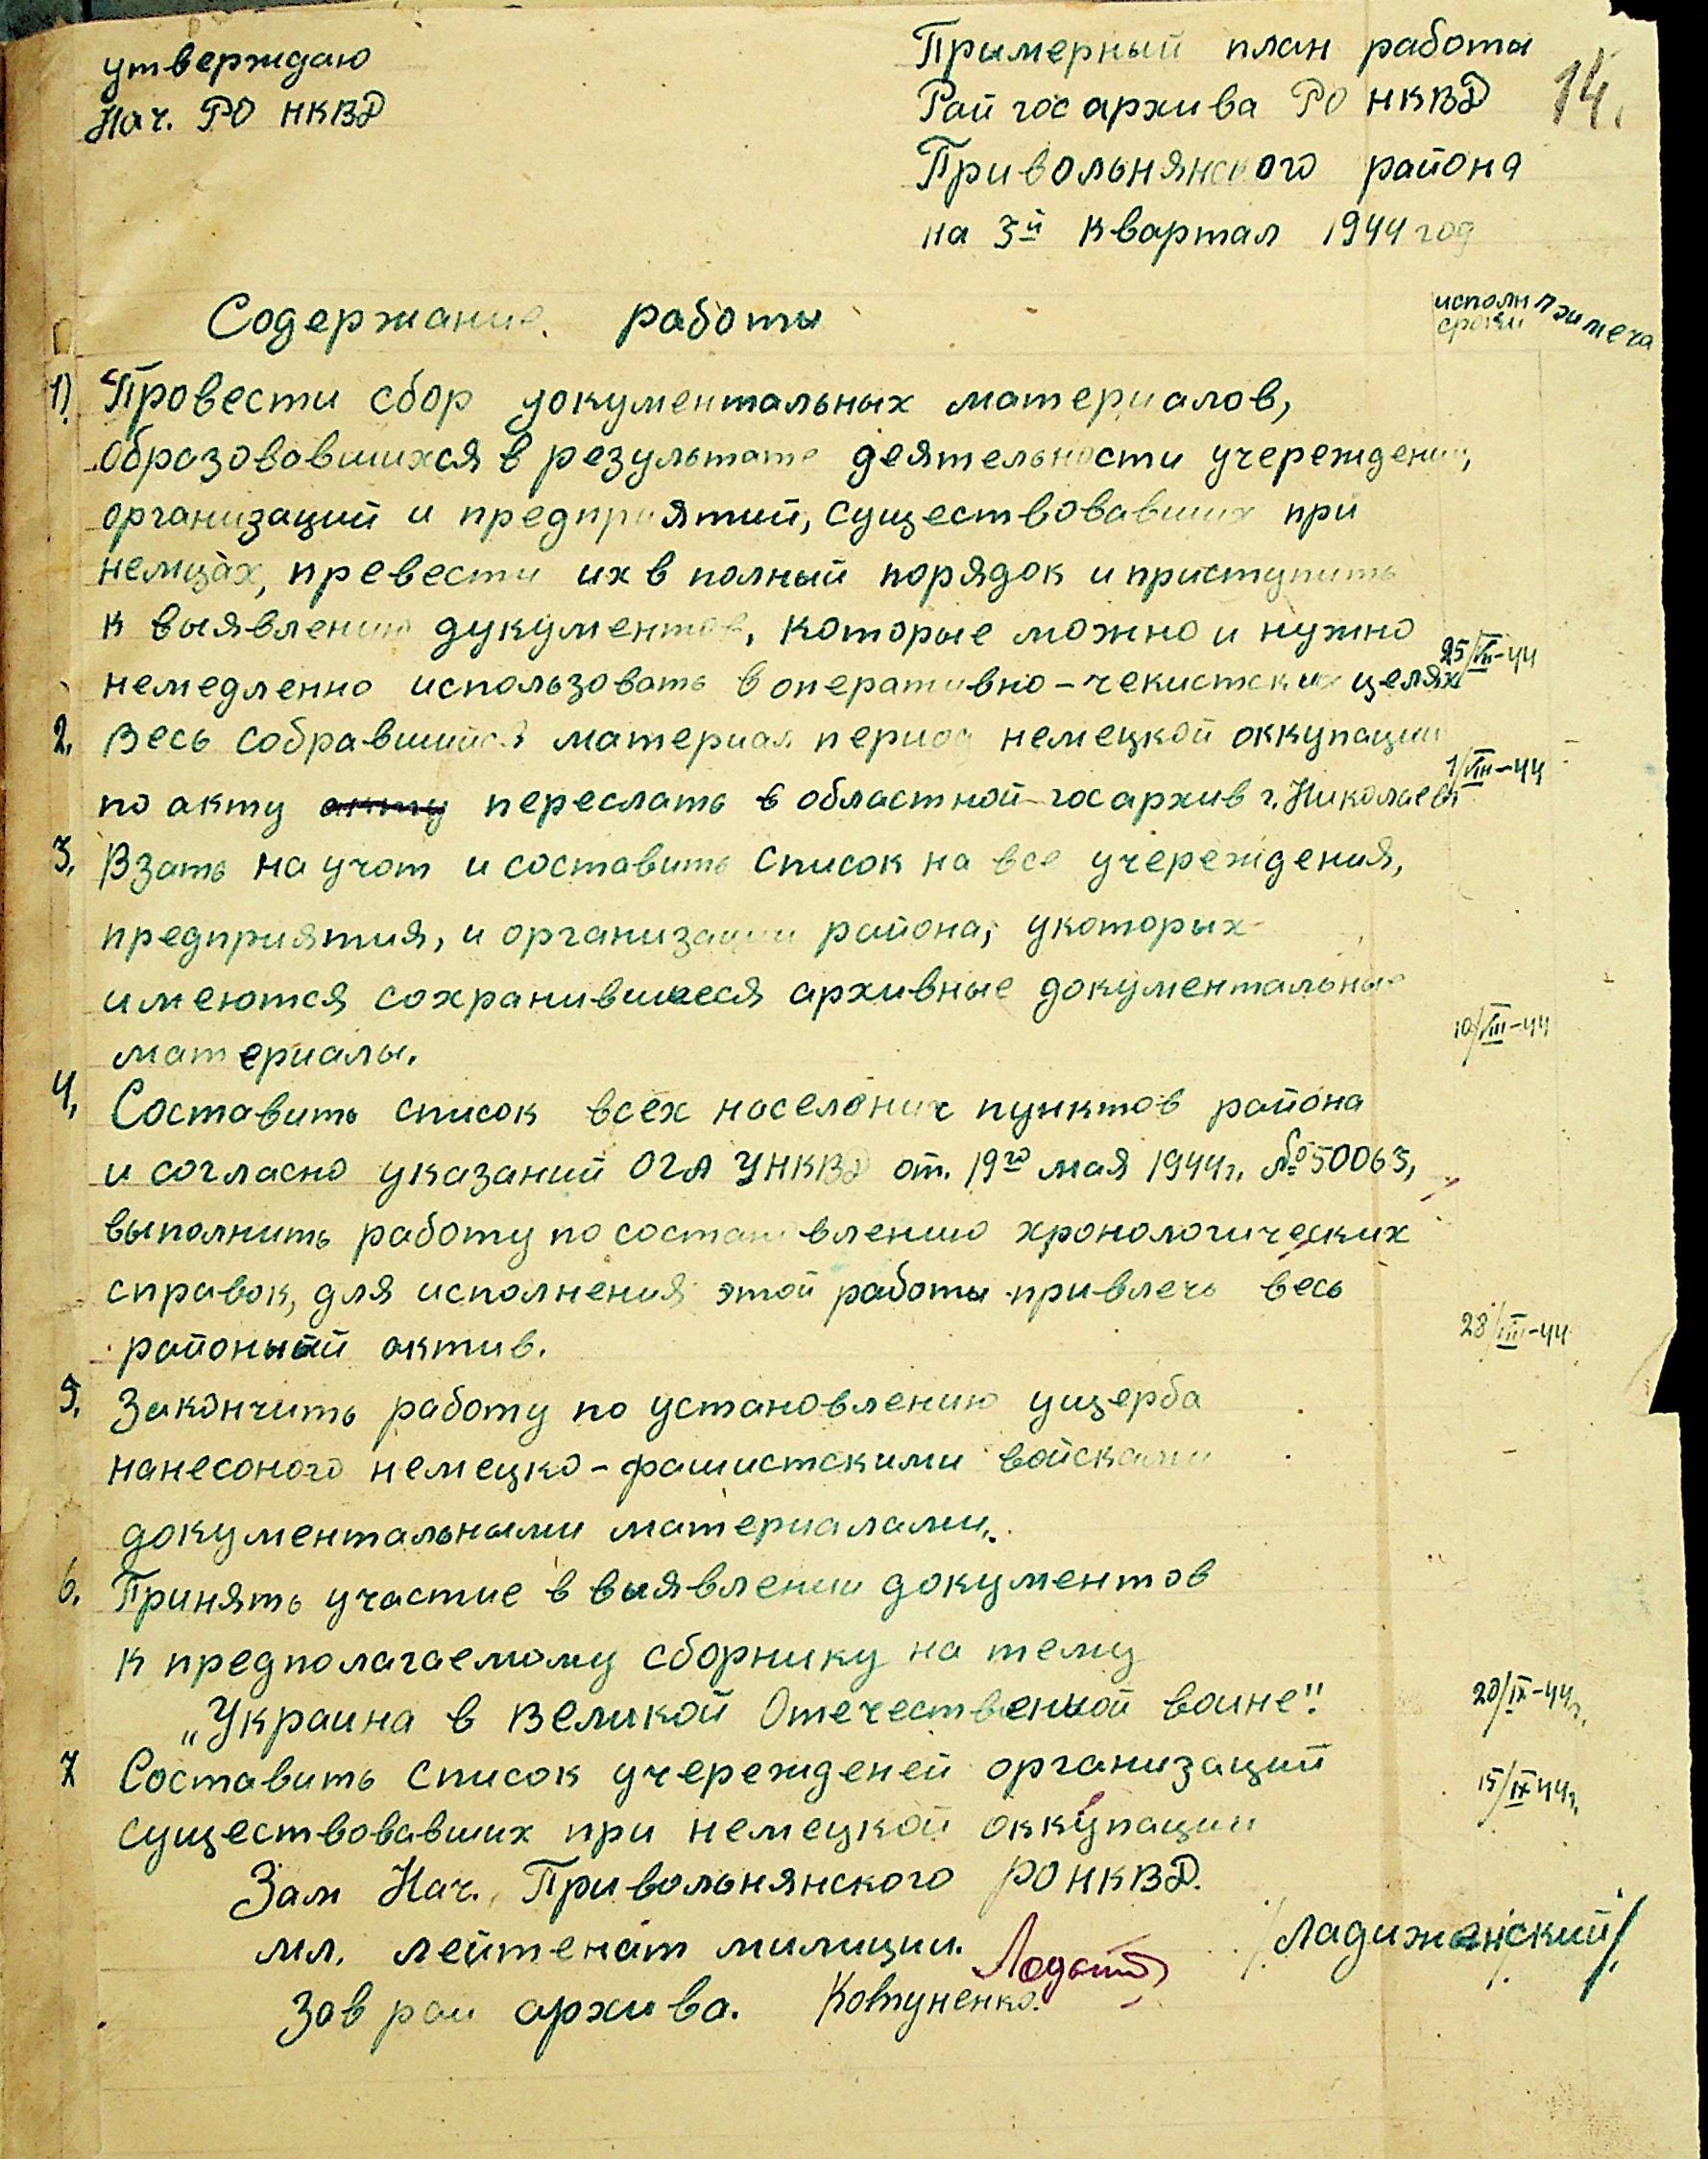 утверждаю
Нач. РО НКВД
Примерный план работы
Рай госархива РО НКВД
Привольнянского района
на 3й квартал 1944 год
14.
Содержание работы
исполн сроки
примеча
1) Провести сбор документальных материалов,
образовавшихся в результате деятельности учереждений,
организаций и предприятий, существовавших при
немцах, превести их в полный порядок и приступить
к выявлению дукументов, которые можно и нужно
немедленно использовать в оперативно-чекистских целях
25/VII-44
2. Весь собравшийся материал период немецкой оккупации
по акту акту переслать в областной госархив г. Николаев
1/VIII-44
3. Взать на учот и составить список на все учереждения,
предприятия, и организации района, укоторых
имеются сохранившиеся архивные документальные
материалы.
10/VIII-44
4. Составить список всех населоних пунктов района
и согласно указаний ОГА УНКВД от. 19го мая 1944г. № 50063,
выполнить работу по состановлению хронологических
справок, для исполнения этой работы привлечь весь
районый актив.
28/VIII-44
5. Закончить работу по установлению ущерба
нанесоного немецко-фашистскими войсками
документальными материалами.
6. Принять участие в выявлении документов
к предполагаемому сборнику на тему
„Украина в великой Отечественной воине".
20/IX-44г.
7 Составить список учережденей организаций
существовавших при немецкой оккупации
15/IX 44г.
Зам Нач. Привольнянского РО НКВД.
мл. лейтенат милиции.
/Ладижанский/
Зав рай архива. Ковтуненко.